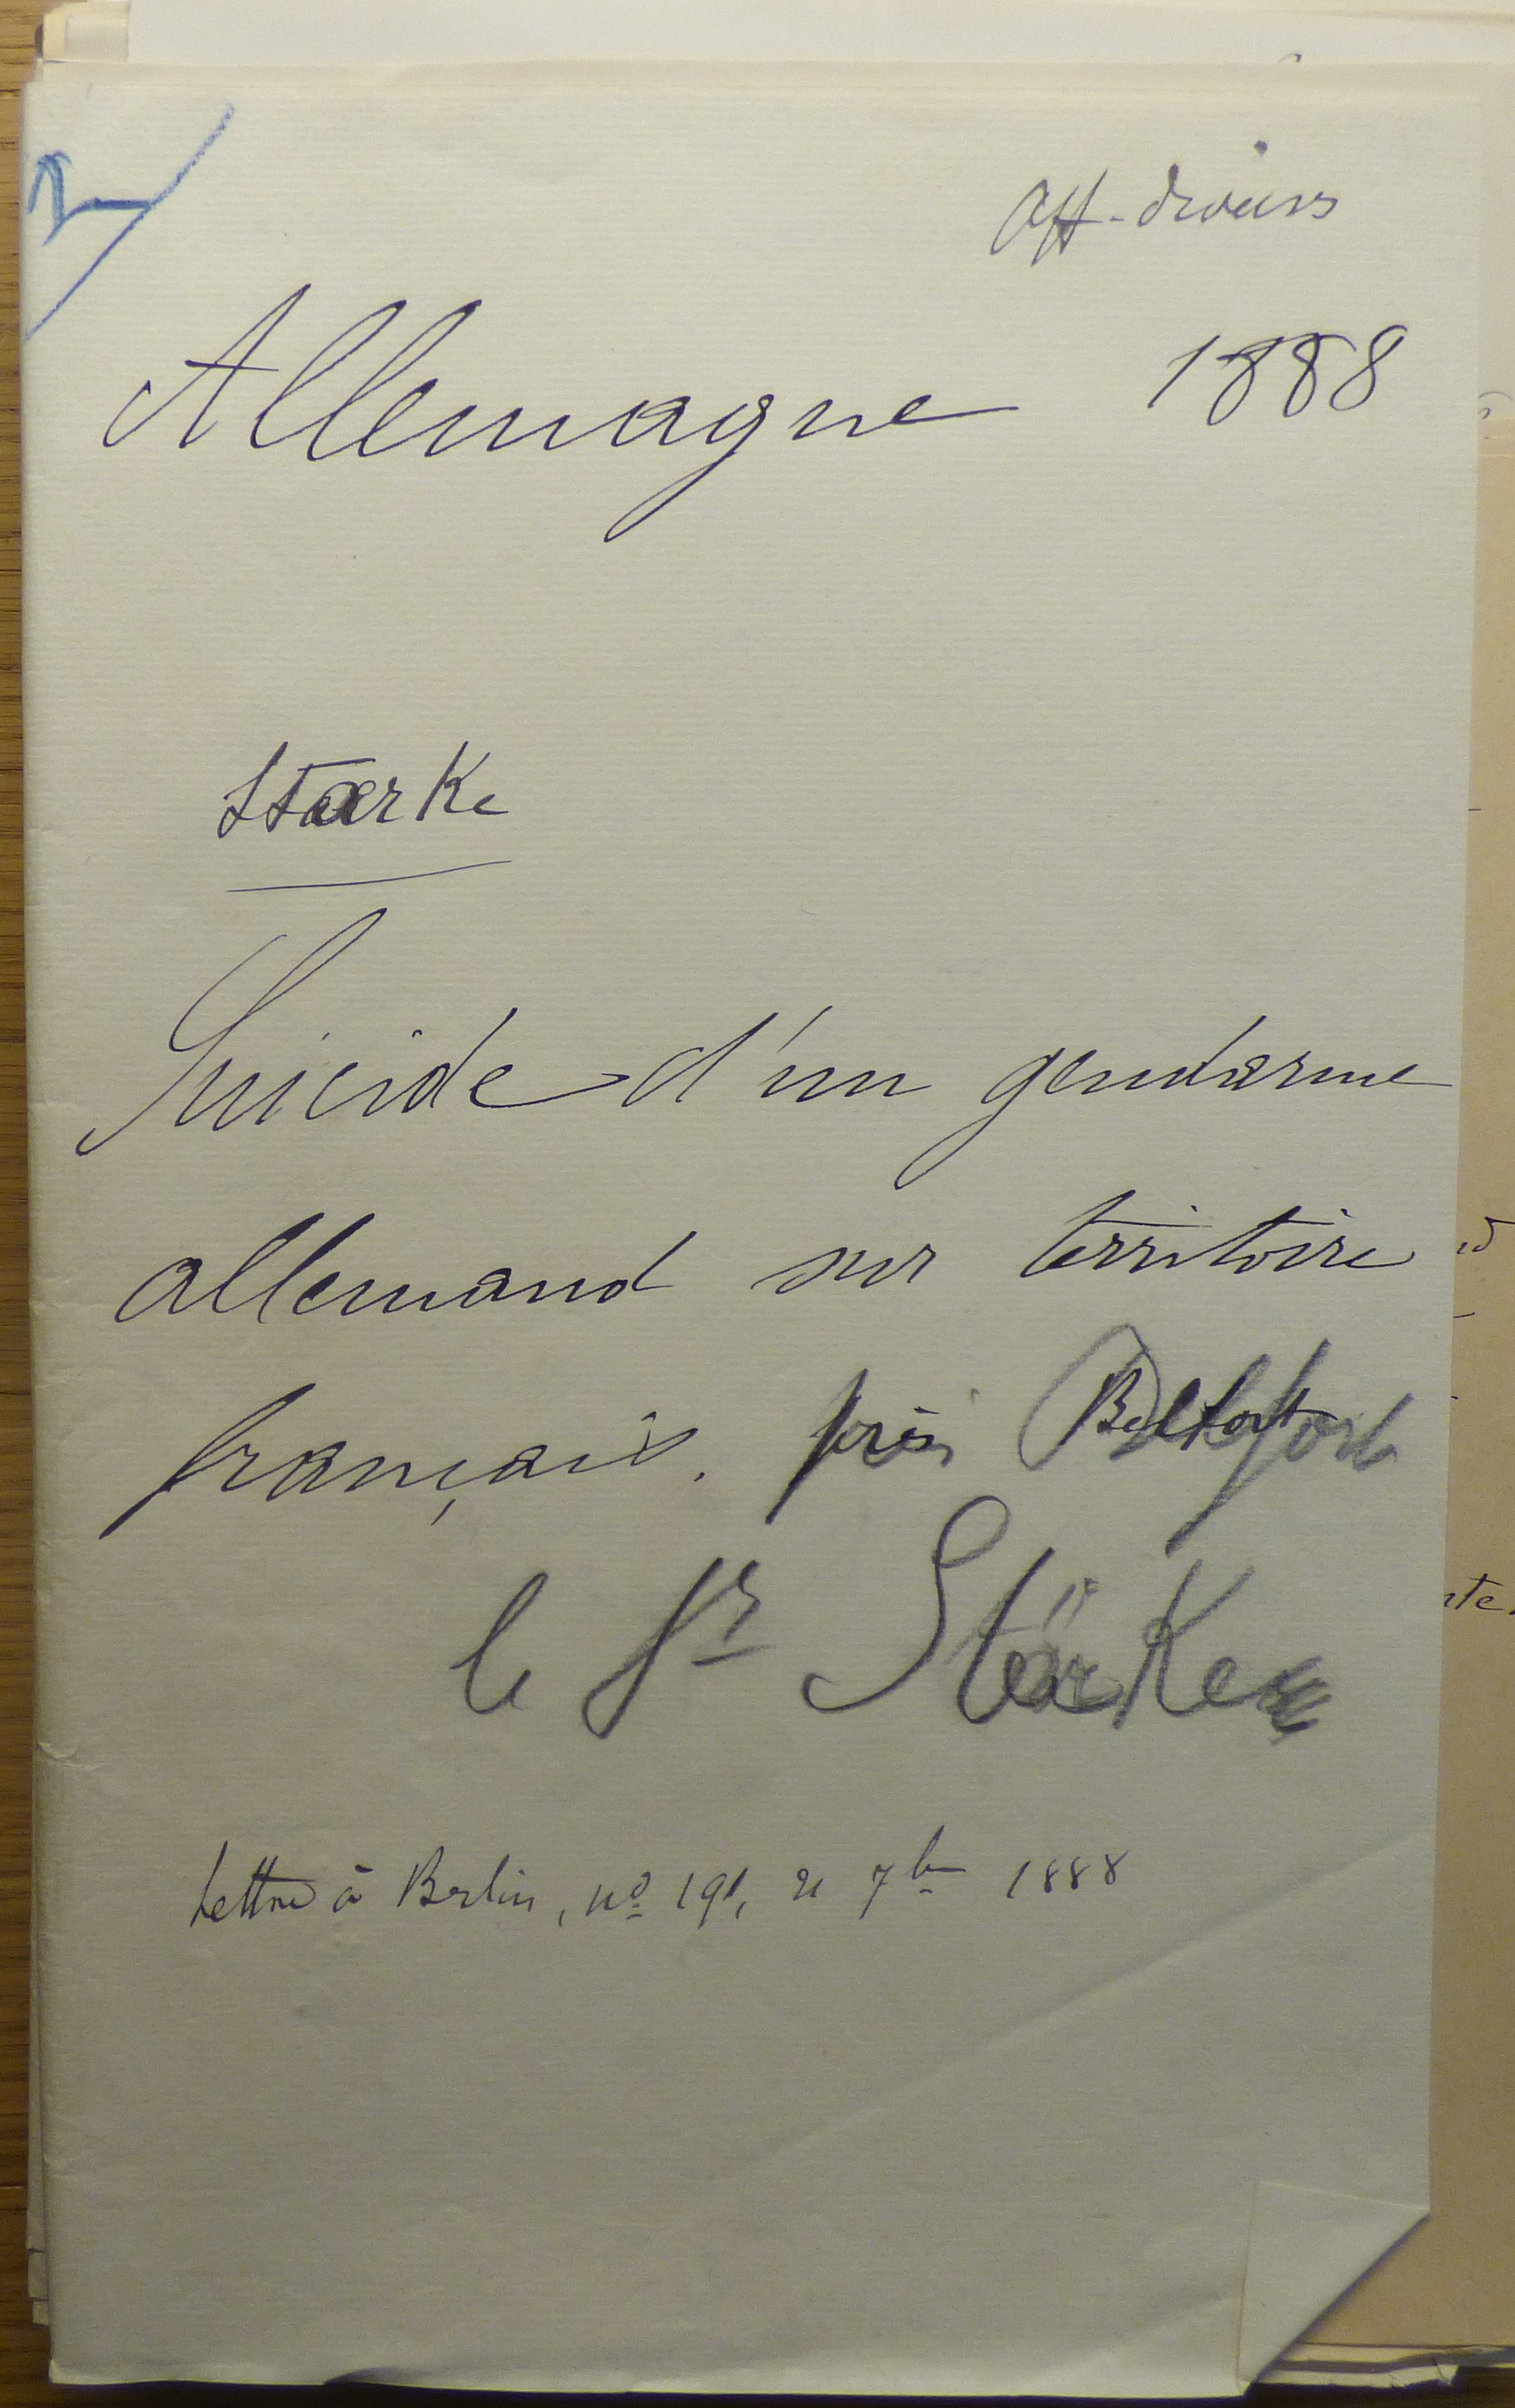 Aff. divers
Allemagne 1888
Staerke
Suicide d'un gendarme
allemand sur territoire
français. près Belfort
le Sr Stärke
Lettre à Berlin, nº 191, 21 7bre 1888